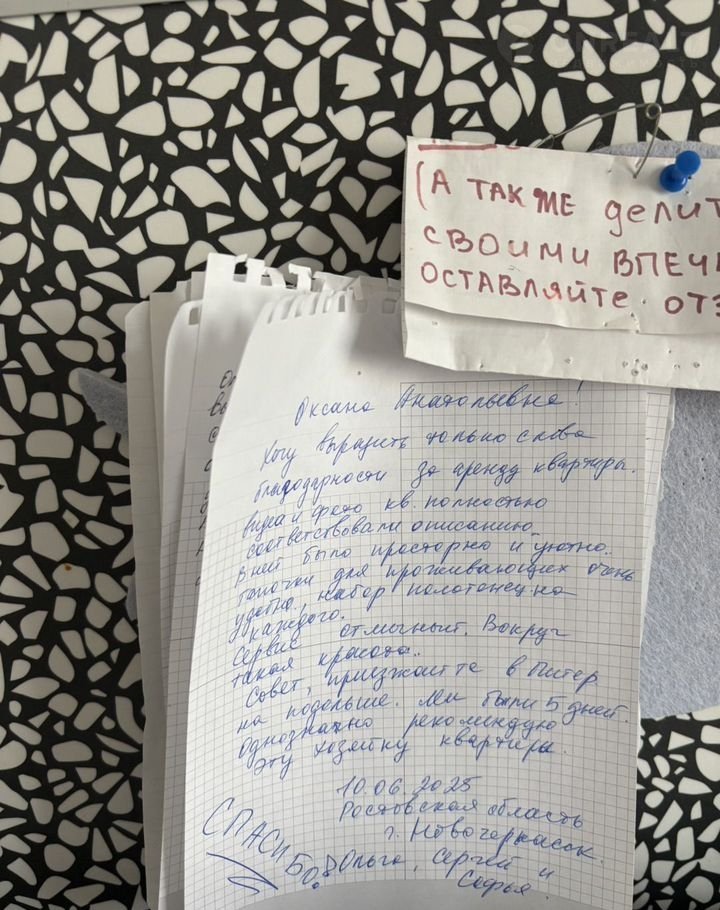 (А ТАКЖЕ делит
СВОИМИ ВПЕЧ
ОСТАВЛЯЙТЕ ОТЗ
Оксана Анатольевна!
Хочу выразить только слова
благодарности за аренду квартиры.
видеа и фото кв. полностью
соответствовали описанию.
В ней было просторно и уютно.
тапочки для проживающих очень
удобно, набор полотенец на
каждого.
Сервис отличный. Вокруг
такая красота..
Совет, приезжайте в Питер
на подольше. Мы были 5 дней.
Однозначно рекомендую
эту хозяйку квартиры.
10.06.2025
Ростовская область
г. Новочеркасск.
СПАСИБО
Ольга, Сергей и
Софья